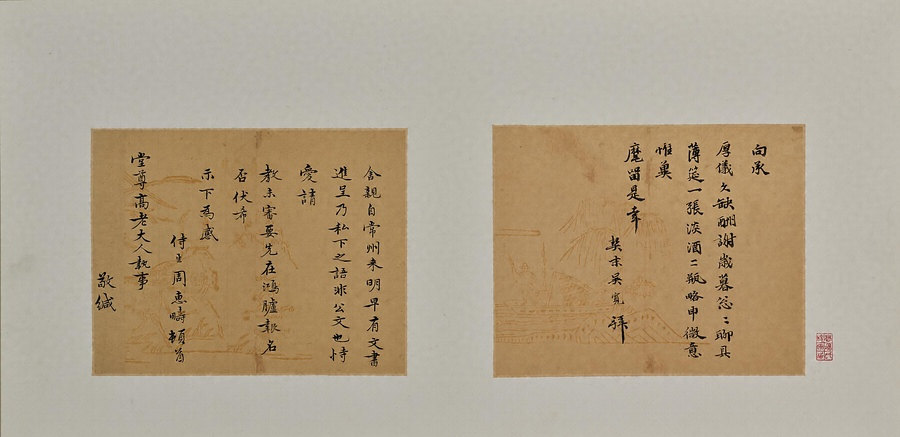 向承
厚儀久缺酬謝歲暮怱〻聊具
薄筵一張淡酒二瓶略申微意
惟冀
麾留是幸
契末吳寬拜
舍親自常州来明早有文書
進呈乃私下之語非公文也特
愛請
教未審要先在鴻臚報名
否伏希
示下為感
侍生周惠疇頓首
堂尊高老大人執事
敬緘